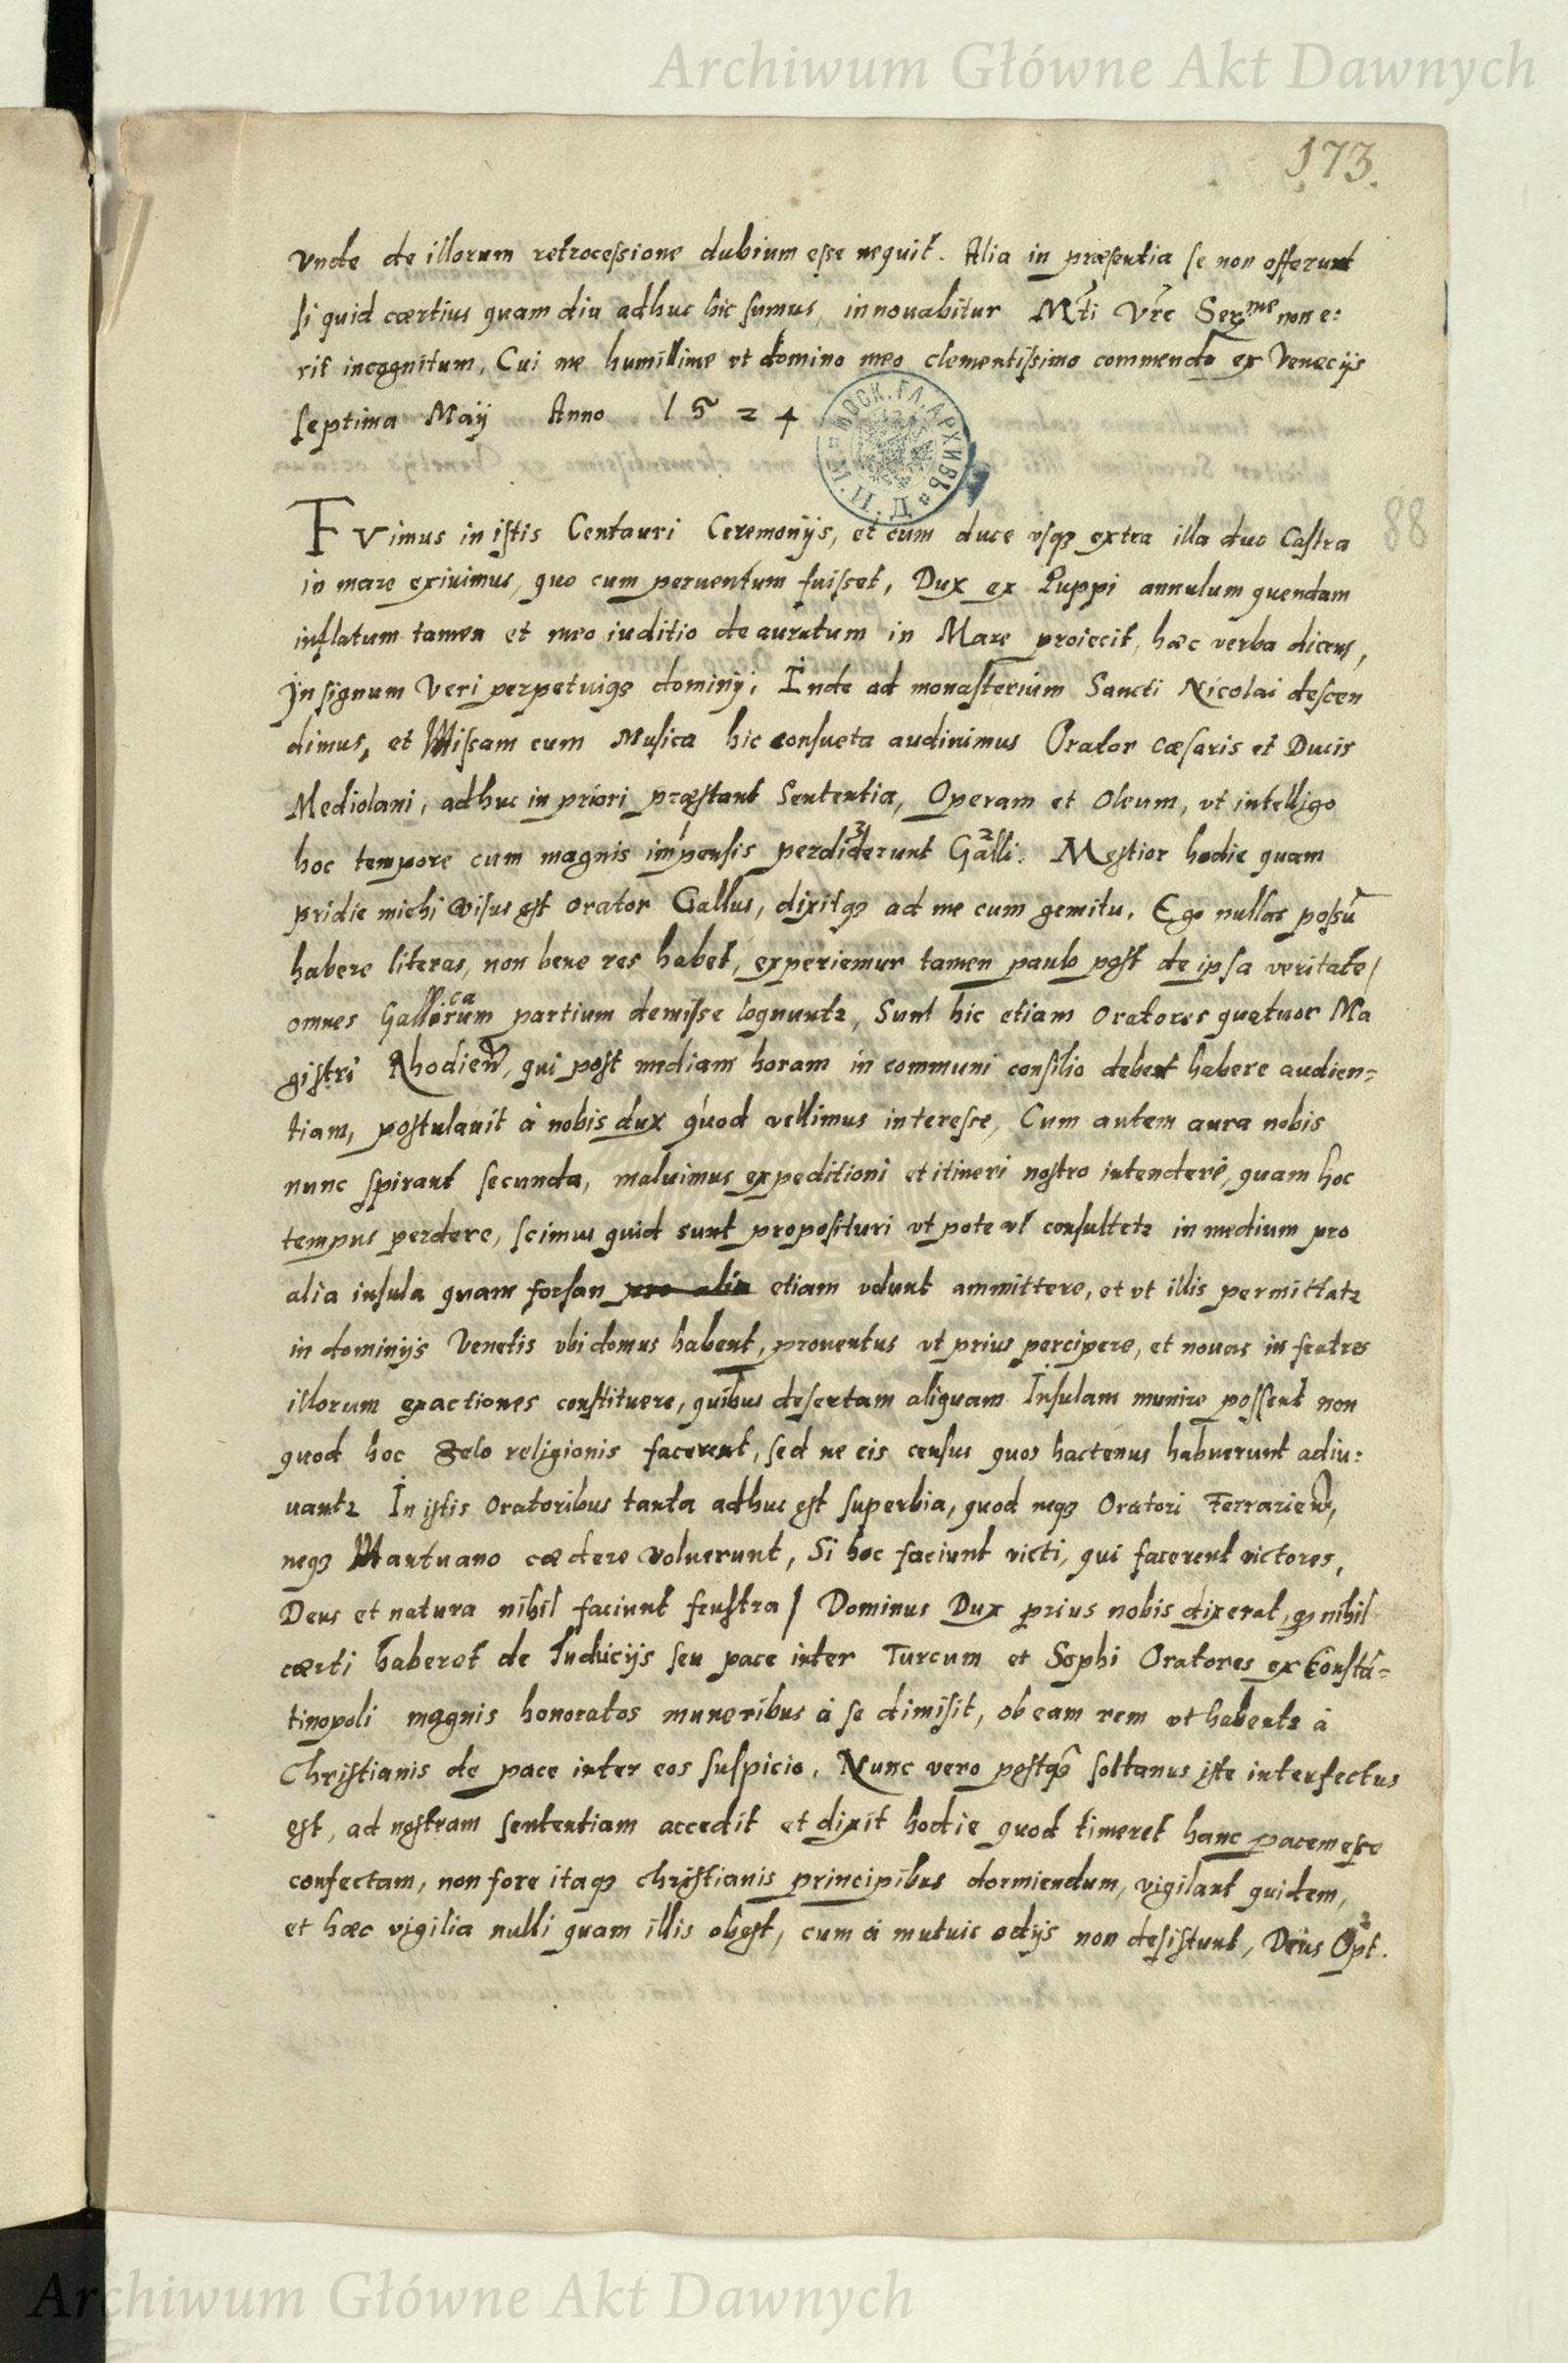 Archiwum Główne Akt Dawnych
173.
Vnde de illorum retrocessione dubium esse nequit. Alia in præsentia se non offerunt
si quid cærtius quam diu adhuc hic sumus, innouabitur Mti Vrẽ Serme non e:
rit incognitum, Cui me humillime vt domino meo clementissimo commendo ex Venecijs
septima Maÿ Anno 1524
МОСК. ГЛ. АРХИВЪ
88
Fvimus in istis Centauri Ceremonÿs, et cum duce vsqȝ extra illa duo Castra
in mare exiuimus, quo cum peruentum fuisset, Dux ex Puppi annulum quendam
inflatum tamen et meo iuditio deauratum in Mare proiecit, hæc verba dicens,
Jn signum Veri perpetuiqȝ dominÿ, Inde ad monasterium Sancti Nicolai descen
dimus, et Missam cum Musica hic consueta audiuimus Orator Cæsaris et Ducis
Mediolani, adhuc in priori præstant Sententia, Operam et Oleum, vt intelligo
hoc tempore cum magnis impensis perdiderunt Galli. Mestior hodie quam
pridie michi visus est orator Gallus, dixitqȝ ad me cum gemitu. Ego nullas possũ
habere literas, non bene res habet, experiemur tamen paulo post de ipsa veritate/
omnes Gallicarum partium demisse loquuntꝛ, Sunt hic etiam Oratores quatuor Ma
gistri Rhodieñ, qui post mediam horam in communi consilio debent habere audien=
tiam, postulauit à nobis dux quod vellimus interesse, Cum autem aura nobis
nunc spirant secunda, maluimus expeditioni et itineri nostro intendere, quam hoc
tempus perdere, scimus quid sunt proposituri vt pote vt consultetꝛ in medium pro
alia insula quam forsan pro alia etiam volunt ammittere, et vt illis permittatꝛ
in dominÿs Venetis vbi domus habent, prouentus vt prius percipere, et nouas in fratres
illorum exactiones constituere, quibus desertam aliquam Insulam munire possent non
quod hoc Zelo religionis facerent, sed ne eis census quos hactenus habuerunt adiu:
uantꝛ In istis Oratoribus tanta adhuc est superbia, quod neqȝ Oratori Ferrarieñ,
neqȝ Mantuano cædere voluerunt, Si hoc faciunt victi, qui facerent victores,
Deus et natura nihil faciunt frustra/ Dominus Dux prius nobis dixerat, qȝ nihil
cærti haberet de Inducijs seu pace inter Turcum et Sophi Oratores ex Constã=
tinopoli magnis honoratos muneribus à se dimisit, ob eam rem vt habentꝛ à
Christianis de pace inter eos suspicio. Nunc vero postqȝ soltanus iste interfectus
est, ad nostram sententiam accedit et dixit hodie quod timeret hanc pacem esse
confectam, non fore itaqȝ christianis principibus dormiendum, vigilant quidem,
et hæc vigilia nulli quam illis obest, cum à mutuis odÿs non desistunt, Deus Opt.
Archiwum Główne Akt Dawnych